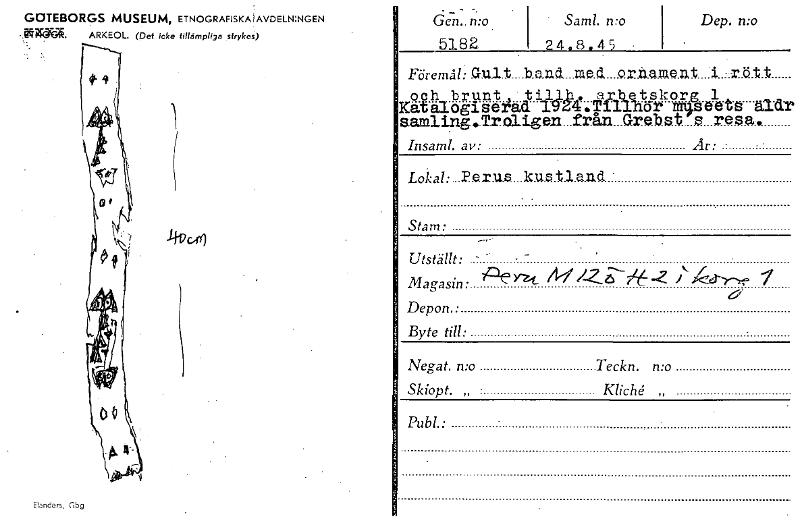 GÖTEBORGS MUSEUM, ETNOGRAFISKA AVDELNINGEN
ARKEOL. (Det icke tillämpliga strykes)
40cm
Elanders, Gbg
Gen. n:o Saml. n:o Dep. n:o
5182 24.8.45
Föremål: Gult band med ornament i rött
och brunt, tillh. arbetskorg 1
Katalogiserad 1924.Tillhör museets äldr
samling.Troligen från Grebst's resa.
Insaml. av: År:
Lokal: Perus kustland
Stam:
Utställt:
Magasin: Peru M 125 H 2 i korg 1
Depon.:
Byte till:
Negat. n:o Teckn. n:o
Skiopt. „ : Kliché „
Publ.: